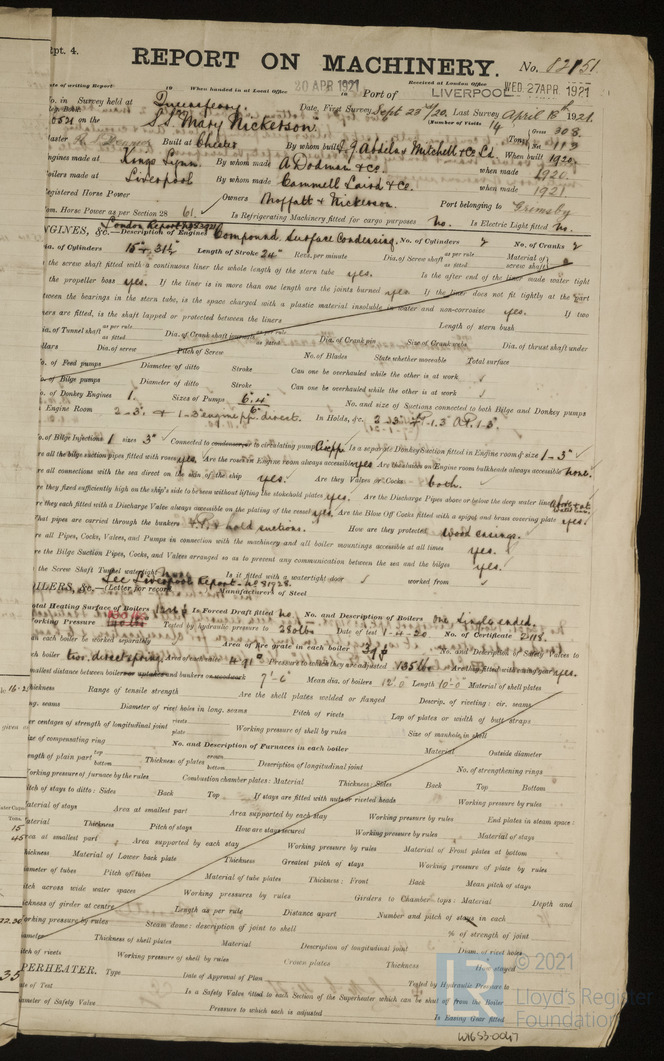 Rpt. 4.
REPORT ON MACHINERY. No. 82151
Date of writing Report 19 When handed in at Local Office 20 APR 1921 19 Port of Received at London Office LIVERPOOL WED. 27 APR. 1921
No. in Survey held at Queensferry. Date, First Survey Sept 23rd/20. Last Survey April 18th 1921
Reg. Book. (Number of Visits 14
on the S.S. "Mary Nickerson". Tons Gross 308. Net 113
Master Built at Chester By whom built Abdela & Mitchell & Co. Ld When built 1920.
Engines made at Kings Lynn. By whom made A Dodman & Co. when made 1920.
Boilers made at Liverpool By whom made Cammell Laird & Co. when made 1921
Registered Horse Power Owners Moffatt & Nickerson. Port belonging to Grimsby
Nom. Horse Power as per Section 28 61. Is Refrigerating Machinery fitted for cargo purposes No. Is Electric Light fitted No.
ENGINES, &c.—Description of Engines Compound Surface Condensing. No. of Cylinders 2 No. of Cranks 2
Dia. of Cylinders 15" & 31½" Length of Stroke 24" Revs. per minute Dia. of Screw shaft as per rule as fitted Material of screw shaft
Is the screw shaft fitted with a continuous liner the whole length of the stern tube yes. Is the after end of the liner made water tight
in the propeller boss yes. If the liner is in more than one length are the joints burned yes If the liner does not fit tightly at the part
between the bearings in the stern tube, is the space charged with a plastic material insoluble in water and non-corrosive yes. If two
liners are fitted, is the shaft lapped or protected between the liners Length of stern bush
Dia. of Tunnel shaft as per rule as fitted Dia. of Crank shaft journals as per rule as fitted Dia. of Crank pin Size of Crank webs Dia. of thrust shaft under
collars Dia. of screw Pitch of Screw No. of Blades State whether moveable Total surface
No. of Feed pumps Diameter of ditto Stroke Can one be overhauled while the other is at work
No. of Bilge pumps Diameter of ditto Stroke Can one be overhauled while the other is at work
No. of Donkey Engines 1. Sizes of Pumps No. and size of Suctions connected to both Bilge and Donkey pumps
In Engine Room In Holds, &c.
No. of Bilge Injections 1 sizes 3" Connected to condenser, or to circulating pump Is a separate Donkey Suction fitted in Engine room & size 1-3"
Are all the bilge suction pipes fitted with roses yes Are the roses in Engine room always accessible yes Are the sluices on Engine room bulkheads always accessible none.
Are all connections with the sea direct on the skin of the ship yes. Are they Valves or Cocks both.
Are they fixed sufficiently high on the ship's side to be seen without lifting the stokehold plates yes. Are the Discharge Pipes above or below the deep water line
Are they each fitted with a Discharge Valve always accessible on the plating of the vessel yes. Are the Blow Off Cocks fitted with a spigot and brass covering plate yes.
What pipes are carried through the bunkers hold suctions. How are they protected wood casings.
Are all Pipes, Cocks, Valves, and Pumps in connection with the machinery and all boiler mountings accessible at all times yes.
Are the Bilge Suction Pipes, Cocks, and Valves arranged so as to prevent any communication between the sea and the bilges yes.
Is the Screw Shaft Tunnel watertight Is it fitted with a watertight door worked from
BOILERS, &c.—(Letter for record See Liverpool Report Manufacturers of Steel
Total Heating Surface of Boilers Is Forced Draft fitted no No. and Description of Boilers One, Single ended.
Working Pressure Tested by hydraulic pressure to 280 lbs Date of test 1-4-20 No. of Certificate
Can each boiler be worked separately Area of fire grate in each boiler No. and Description of Safety Valves to
each boiler two, direct spring. Area of each valve 4.91" Pressure to which they are adjusted 135 lbs Are they fitted with easing gear yes.
Smallest distance between boilers or uptakes and bunkers or woodwork 7'-6" Mean dia. of boilers 12'.0 Length 10'-0" Material of shell plates
Thickness Range of tensile strength Are the shell plates welded or flanged Descrip. of riveting: cir. seams
long. seams Diameter of rivet holes in long. seams Pitch of rivets Lap of plates or width of butt straps
Per centages of strength of longitudinal joint rivets plate Working pressure of shell by rules Size of manhole in shell
Size of compensating ring No. and Description of Furnaces in each boiler Material Outside diameter
Length of plain part top bottom Thickness of plates crown bottom Description of longitudinal joint No. of strengthening rings
Working pressure of furnace by the rules Combustion chamber plates: Material Thickness: Sides Back Top Bottom
Pitch of stays to ditto: Sides Back Top If stays are fitted with nuts or riveted heads Working pressure by rules
Material of stays Area at smallest part Area supported by each stay Working pressure by rules End plates in steam space:
Material Thickness Pitch of stays How are stays secured Working pressure by rules Material of stays
Area at smallest part Area supported by each stay Working pressure by rules Material of Front plates at bottom
Thickness Material of Lower back plate Thickness Greatest pitch of stays Working pressure of plate by rules
Diameter of tubes Pitch of tubes Material of tube plates Thickness: Front Back Mean pitch of stays
Pitch across wide water spaces Working pressures by rules Girders to Chamber tops: Material Depth and
thickness of girder at centre Length as per rule Distance apart Number and pitch of stays in each
Working pressure by rules Steam dome: description of joint to shell % of strength of joint
Diameter Thickness of shell plates Material Description of longitudinal joint Diam. of rivet holes
Pitch of rivets Working pressure of shell by rules Crown plates Thickness How stayed
SUPERHEATER. Type Date of Approval of Plan Tested by Hydraulic Pressure to
Date of Test Is a Safety Valve fitted to each Section of the Superheater which can be shut off from the Boiler
Diameter of Safety Valve Pressure to which each is adjusted Is Easing Gear fitted
© 2021
Lloyd's Register
Foundation
W1653-0047